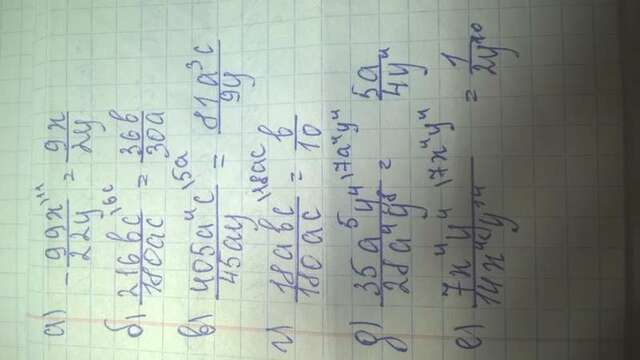 а) -99x/22y \11 = 9x/2y
б) 216bc/180ac \6c = 36b/30a
в) 405a⁴c/45ay \5a = 81a³c/9y
г) 18abc/180ac \18ac = b/10
д) 35a⁵y⁴/28a⁴y⁸ \7a⁴y⁴ = 5a/4y⁴
е) 7x⁴y⁴/14x⁴y¹⁴ \7x⁴y⁴ = 1/2y¹⁰